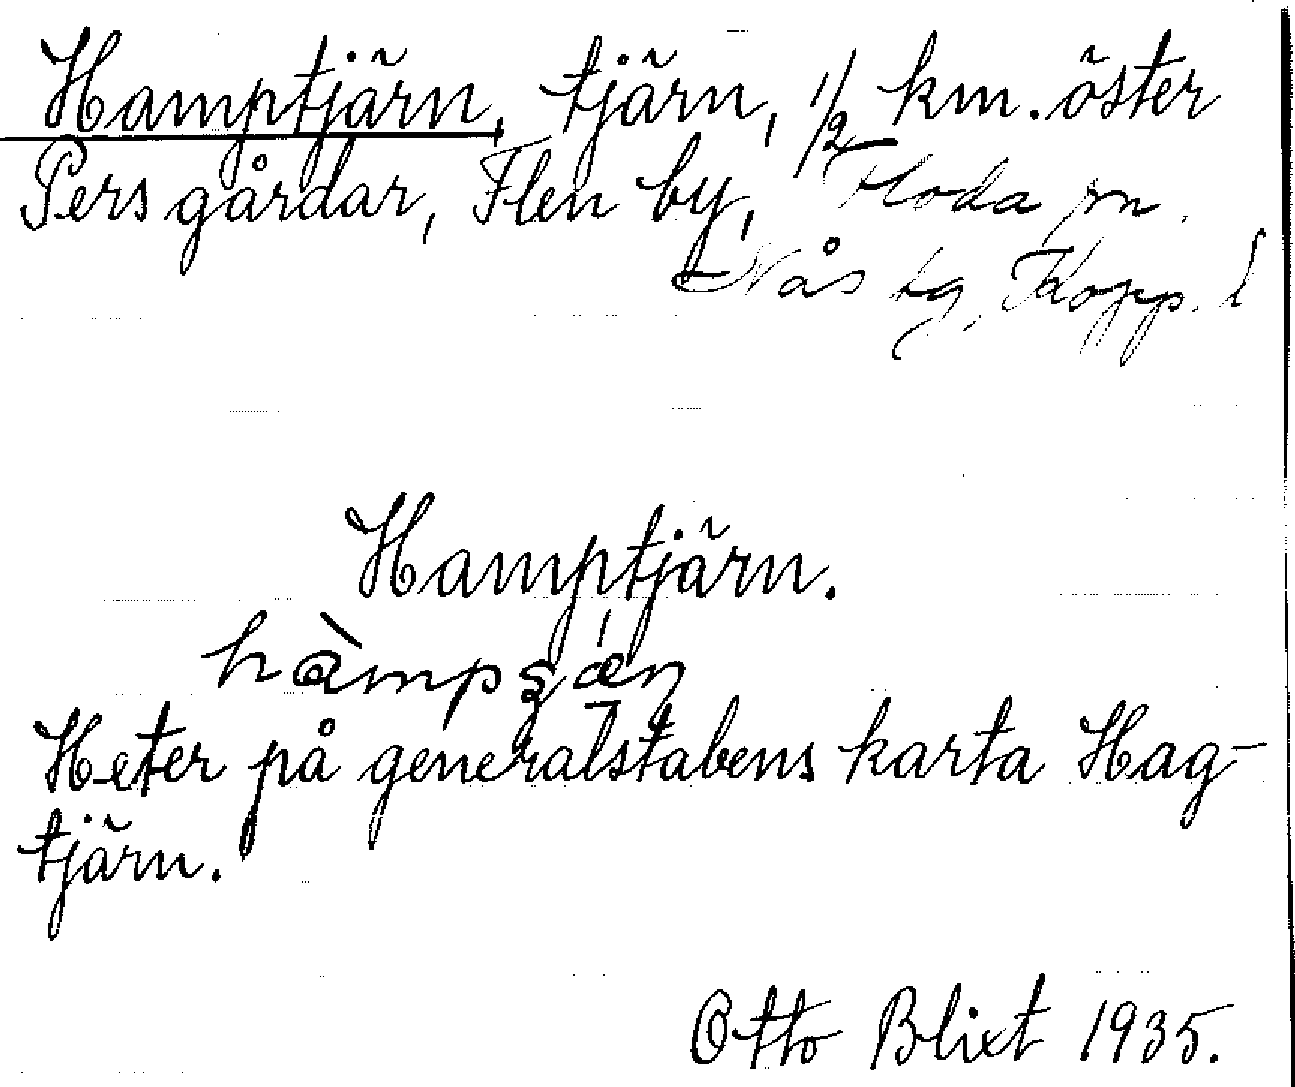 Hamptjärn, tjärn, 1/2 km. öster
Pers gårdar, Flen by, Floda sn.
Nås tg, Kopp. l
Hamptjärn.
Heter på generalstabens karta Hag-
tjärn.
Otto Blixt 1935.